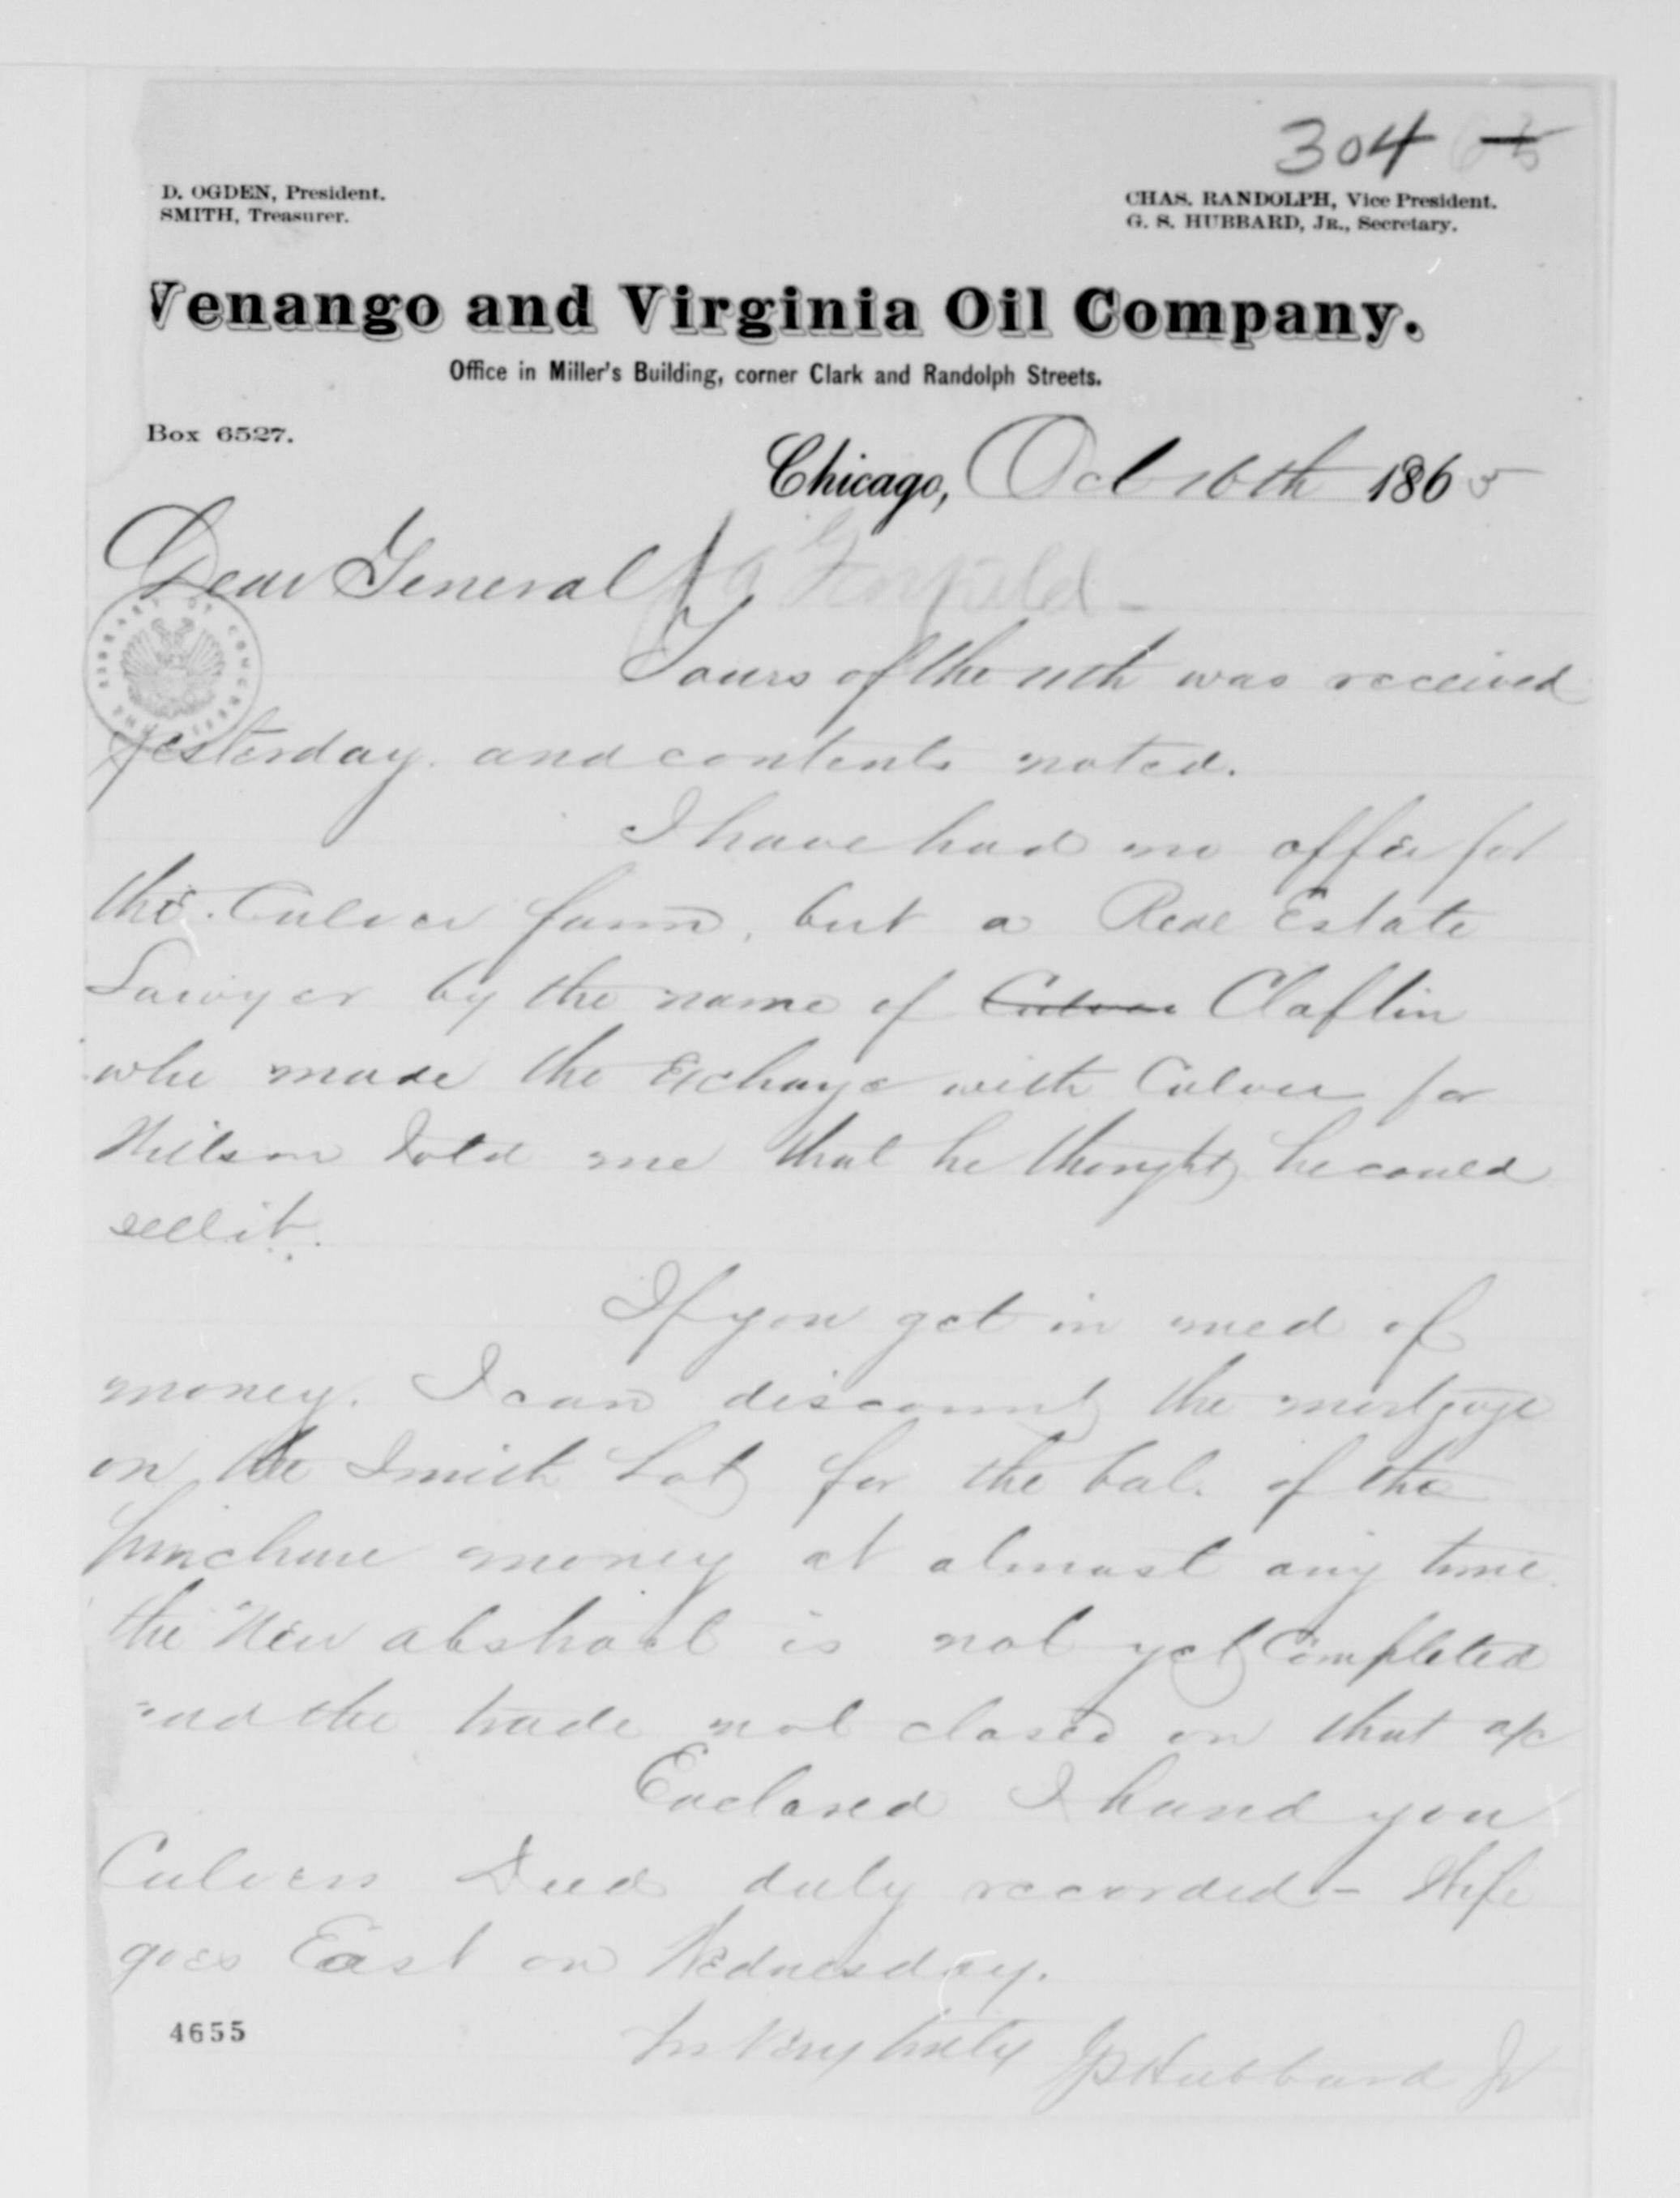 304
D. OGDEN, President.
SMITH, Treasurer.
CHAS. RANDOLPH, Vice President.
G. S. HUBBARD, JR., Secretary.
Venango and Virginia Oil Company.
Office in Miller's Building, corner Clark and Randolph Streets.
Box 6527.
Chicago, Oct 16th 1865
Dear General J A Garfield -
Yours of the 11th was received
yesterday. and contents noted.
I have had no offer for
the Culver farm, but a Real Estate
Lawyer by the name of Culver Claflin
who made the Exchange with Culver for
Wilson told me that he thought he could
sell it.
If you get in need of
money. I can discount the mortgage
on the Smith Lot for the bal. of the
purchase money at almost any time
the New abstract is not yet Completed
and the trade not closed on that a/c
Enclosed I hand you
Culvers Deed duly recorded - Wife
goes East on Wednesday.
Very truly GS Hubbard Jr
4655